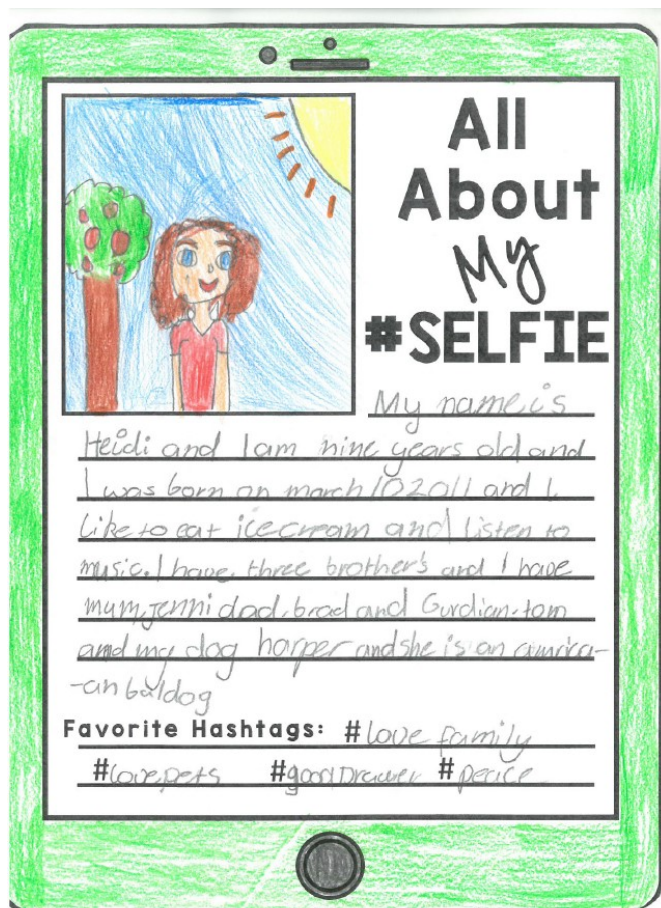 All
About
My
#SELFIE
My name is
Heidi and I am nine years old and
I was born on march 10 2011 and I
Like to eat icecream and listen to
music. I have three brother's and I have
mum, Jenni dad, brad and Gurdian-tom
and my dog harper and she is an amirica-
-an buldog
Favorite Hashtags: #love family
#lovepets #goodDrawer #peace